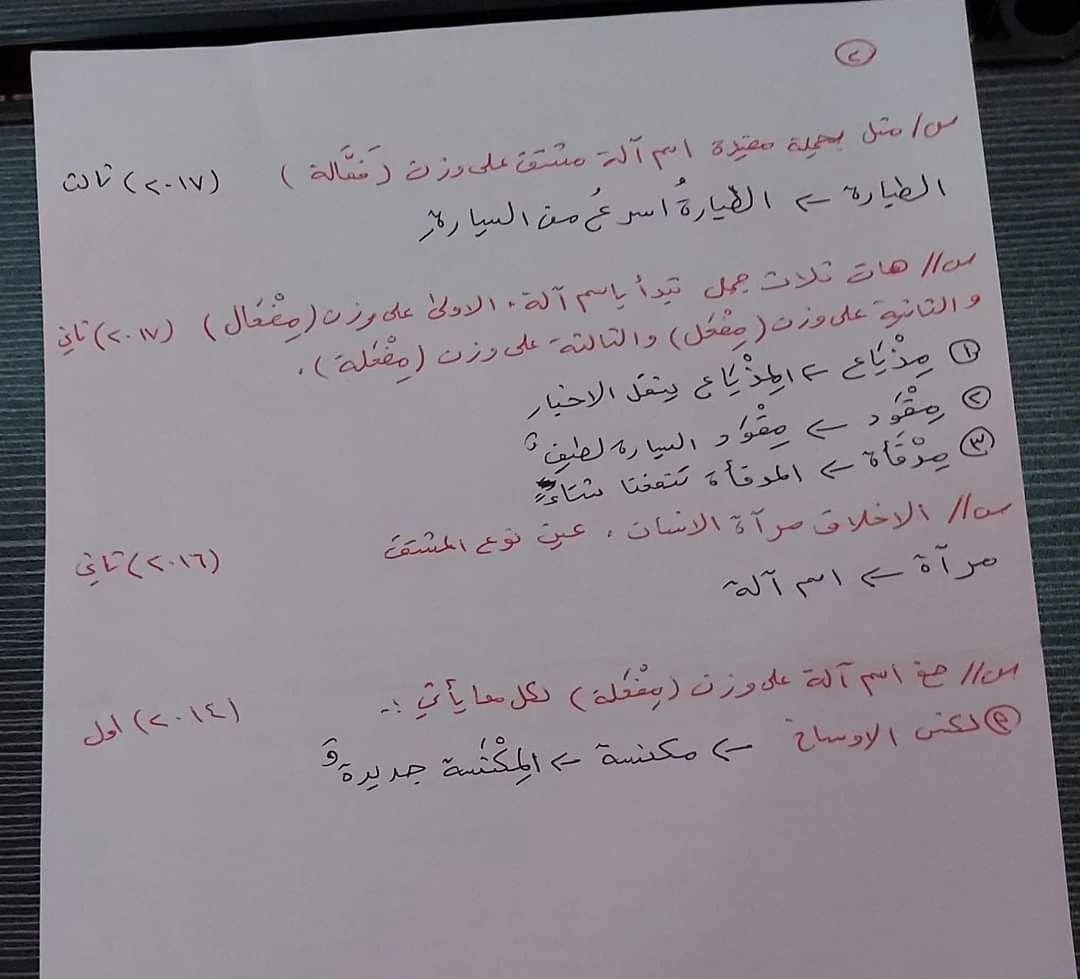 ٢
س/ مثل بجملة مفيدة اسم آلة مشتق على وزن (فَعَّالة) (٢٠١٧) ثالث
الطيارة ← الطيارةُ اسرعُ من السيارةِ
س// هات ثلاث جمل تبدأ باسم آلة. الاولى على وزن (مِفْعَال) (٢٠١٧) ثاني
والثانية على وزن (مِفْعَل) والثالثة على وزن (مِفْعَلة).
١ مِذْيَاع ← المِذْيَاع ينقل الاخبار
٢ مِقْوَد ← مِقْوَد السيارة لطيفٌ
٣ مِدْفَاة ← المدفأة تنفعنا شتاءً
س// الاخلاق مرآة الانسان. عين نوع المشتق (٢٠١٦) ثاني
مرآة ← اسم آلة
س// صغ اسم آلة على وزن (مِفْعَلة) لكل مما يأتي :- (٢٠١٤) اول
م لكنس الاوساخ ← مكنسة ← المِكْنَسة جديدةٌ